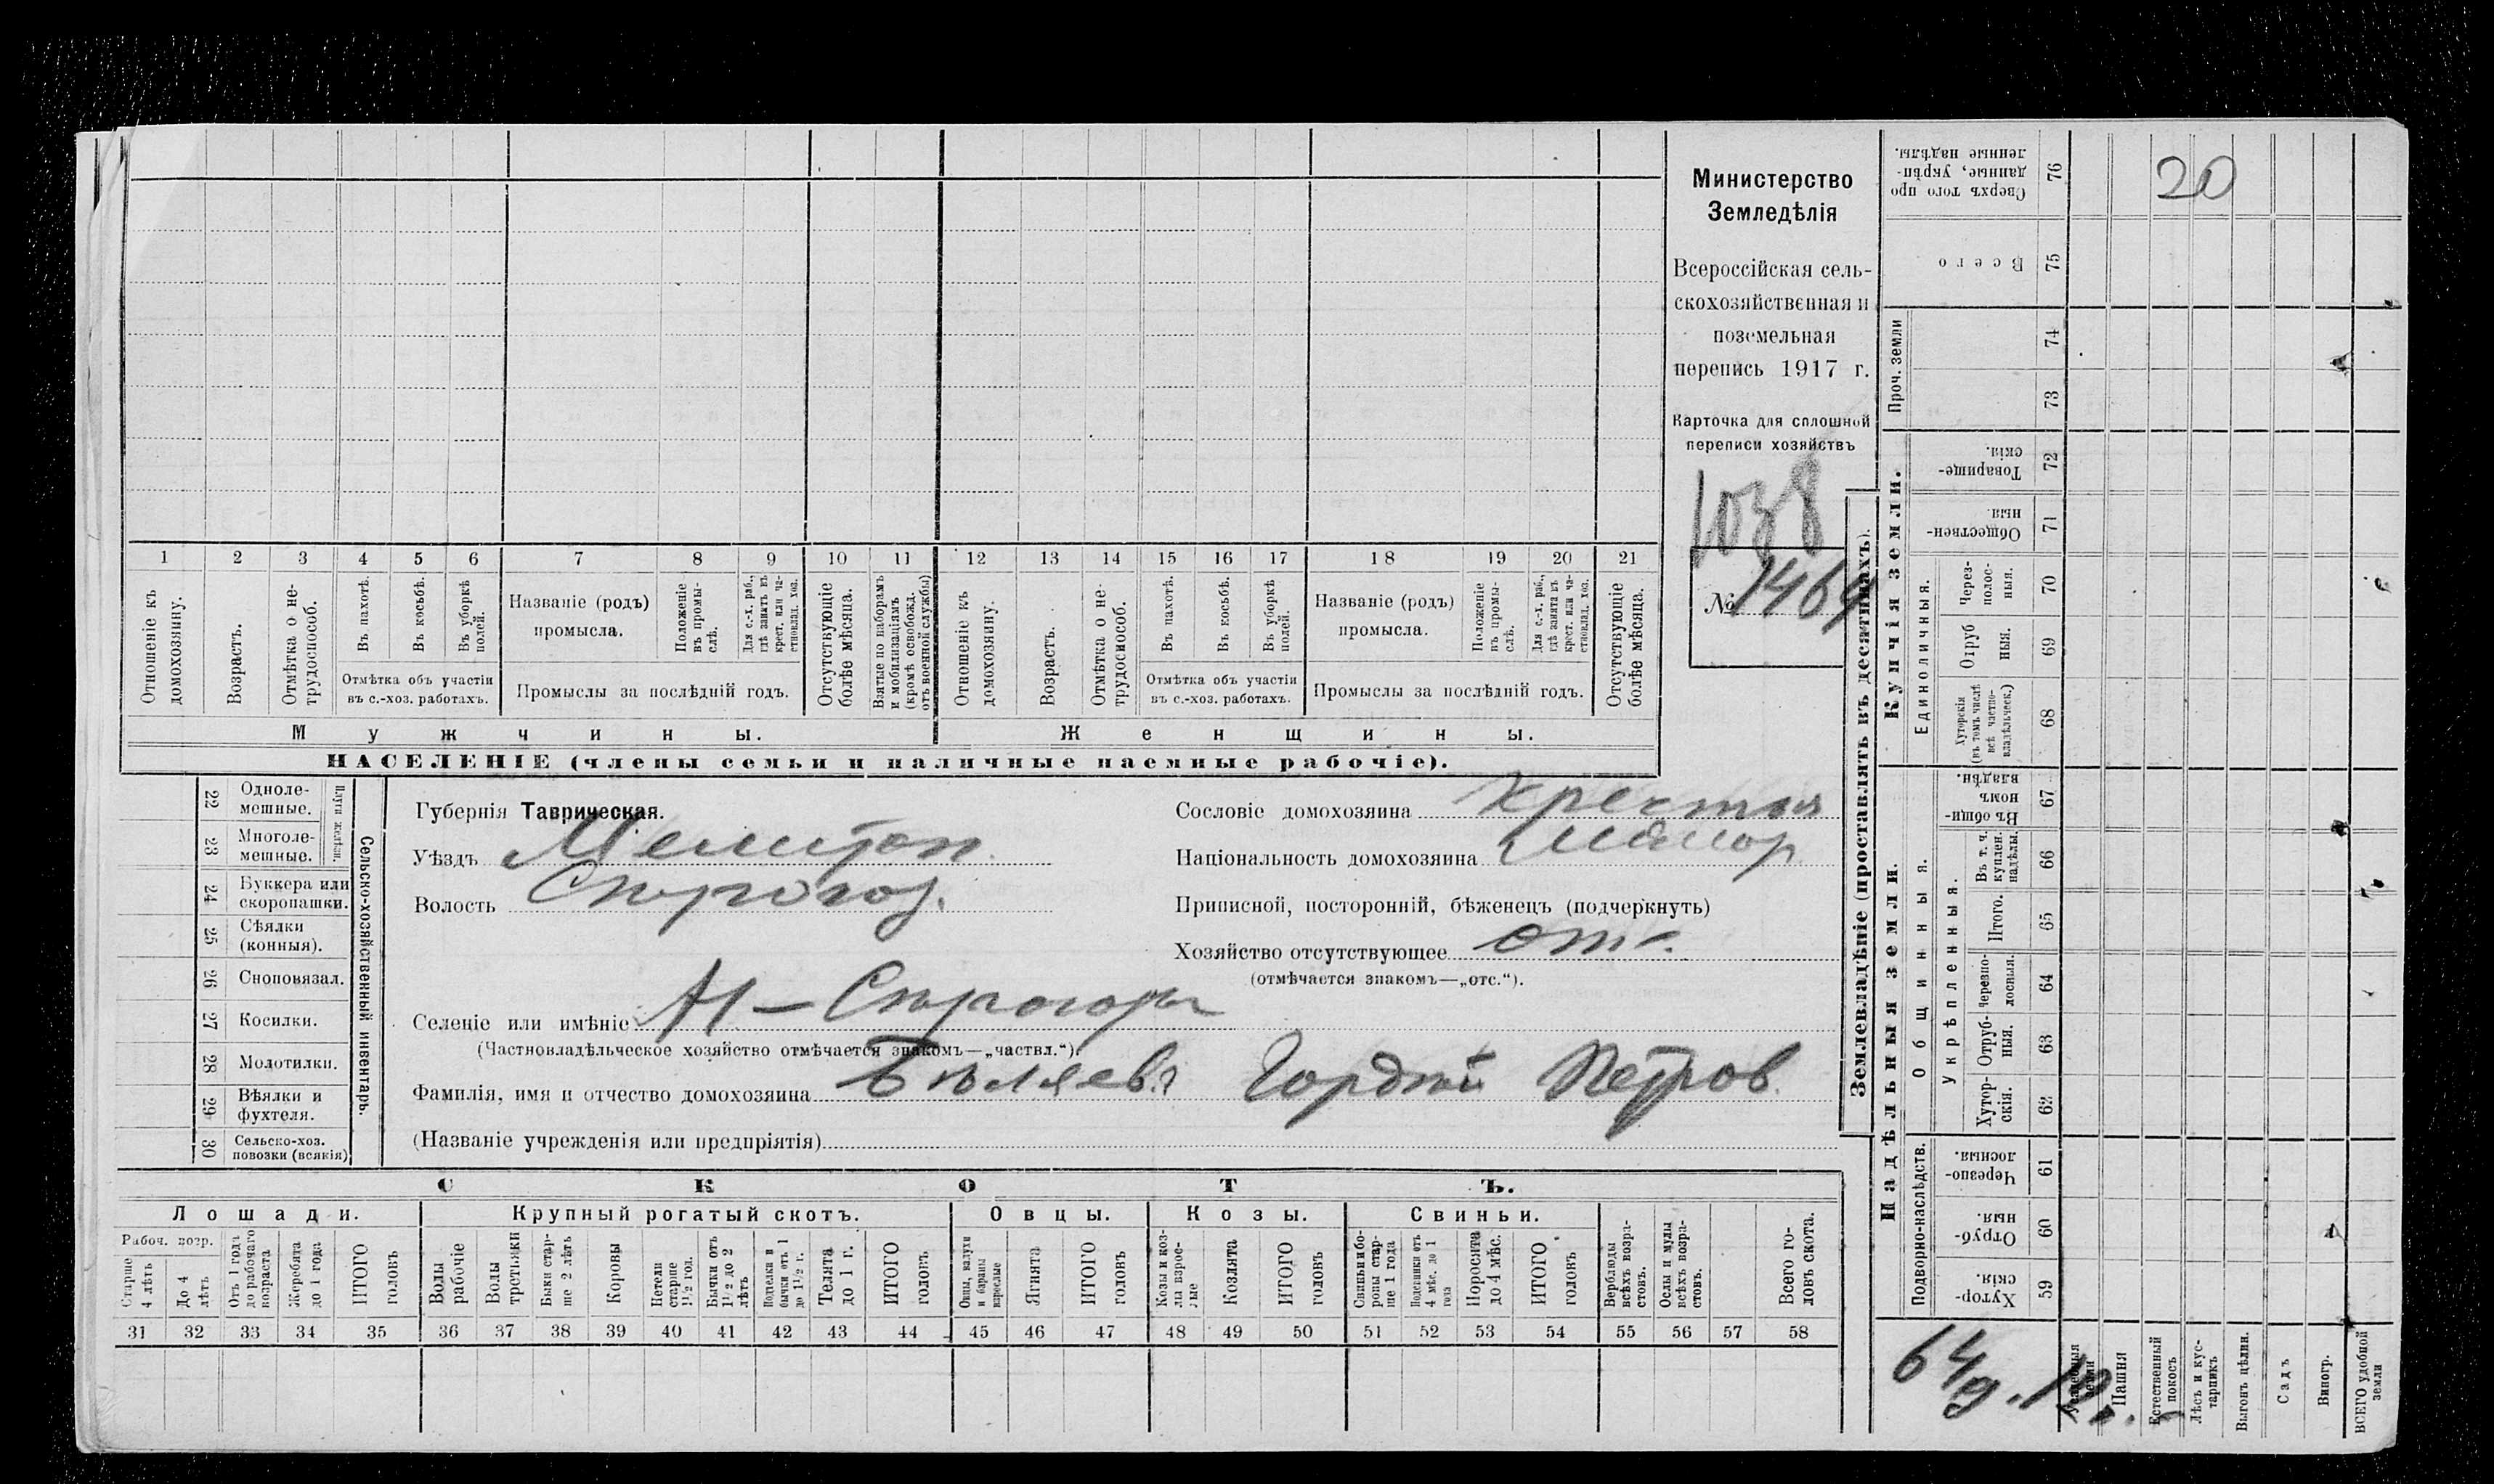 1 2 3 4 5 6 7 8 9 10 11 12 13 14 15 16 17 18 19 20 21
Отношеніе къ домохозяину.
Возрастъ.
Отмѣтка о не-
трудоспособ.
Въ пахотѣ.
Въ косьбѣ.
Въ уборкѣ
полей.
Отмѣтка объ участіи
въ с.-хоз. работахъ.
Названіе (родъ)
промысла.
Положеніе
въ промы-
слѣ.
Для с.-х. раб.,
гдѣ занятъ въ
крест. или ча-
стновлад. хоз.
Промыслы за послѣдній годъ.
Отсутствующіе
болѣе мѣсяца.
Взятые по наборамъ
и мобилизаціямъ
(кромѣ освобожд.
отъ военной службы)
Отношеніе къ
домохозяину.
Возрастъ.
Отмѣтка о не-
трудоспособ.
Въ пахотѣ.
Въ косьбѣ.
Въ уборкѣ
полей.
Отмѣтка объ участіи
въ с.-хоз. работахъ.
Названіе (родъ)
промысла.
Положеніе
въ промы-
слѣ.
Для с.-х. раб.,
гдѣ занята въ
крест. или ча-
стновлад. хоз.
Промыслы за послѣдній годъ.
Отсутствующіе
болѣе мѣсяца.
Мужчины.
Женщины.
НАСЕЛЕНІЕ (члены семьи и наличные наемные рабочіе).
Министерство
Земледѣлія
Всероссійская сель-
скохозяйственная и
поземельная
перепись 1917 г.
Карточка для сплошной
переписи хозяйствъ
1038
№ 1464
22 Одноле-
мешные.
23 Многоле-
мешные.
24 Буккера или
скоропашки.
25 Сѣялки
(конныя).
26 Сноповязал.
27 Косилки.
28 Молотилки.
29 Вѣялки и
фухтеля.
30 Сельско-хоз.
повозки (всякія)
Сельско-хозяйственный инвентарь.
Губернія Таврическая.
Уѣздъ Мелитоп.
Волость
Селеніе или имѣніе Н-Сырогозы
(Частновладѣльческое хозяйство отмѣчается знакомъ—„частвл.“).
Фамилія, имя и отчество домохозяина Бѣляевъ Гордѣй Петров.
(Названіе учрежденія или предпріятія)
Сословіе домохозяина Крестья
Національность домохозяина Малор
Приписной, посторонній, бѣженецъ (подчеркнуть)
Хозяйство отсутствующее отс.
(отмѣчается знакомъ—„отс.“).
СКОТЪ.
Лошади.
Рабоч. возр.
Старше
4 лѣтъ
До 4
лѣтъ
Отъ 1 года
до рабочаго
возраста
Жеребята
до 1 года
ИТОГО
головъ
Крупный рогатый скотъ.
Волы
рабочіе
Волы
третьяки
Быки стар-
ше 2 лѣтъ
Коровы
Нетели
старше
1½ год.
Бычки отъ
1½ до 2
лѣтъ
Подтелки и
бычки отъ 1
до 1½ г.
Телята
до 1 г.
ИТОГО
головъ
Овцы.
Овцы, валухи
и бараны
взрослые
Ягнята
ИТОГО
головъ
Козы.
Козы и коз-
лы взрос-
лые
Козлята
ИТОГО
головъ
Свиньи.
Свиньи и бо-
ровы стар-
ше 1 года
Подсвинки отъ
4 мѣс. до 1
года
Поросята
до 4 мѣс.
ИТОГО
головъ
Верблюды
всѣхъ возра-
стовъ.
Ослы и мулы
всѣхъ возра-
стовъ.
Всего го-
ловъ скота.
31 32 33 34 35 36 37 38 39 40 41 42 43 44 45 46 47 48 49 50 51 52 53 54 55 56 57 58
Землевладѣніе (проставлять въ десятинахъ).
Сверхъ того про
данные, укрѣп-
ленные надѣлы. 76
20
Всего 75
Проч. земли
74
73
Купчія земли.
Товарище-
скія. 72
Обществен-
ныя. 71
Единоличныя.
Через-
полос-
ныя. 70
Отруб
ныя. 69
Хуторскія
(въ томъ числѣ
всѣ частно-
владѣльческ.) 68
Надѣльныя земли.
Общинныя.
Въ общи-
номъ
владѣн. 67
Укрѣпленныя.
Въ т. ч.
куплен.
надѣлы. 66
Итого. 65
Черезпо-
лосныя. 64
Отруб-
ныя. 63
Хутор-
скія. 62
Подворно-наслѣдств.
Черезпо-
лосныя. 61
Отруб-
ныя. 60
Хутор-
скія. 59
Пашня
Естественный
покосъ
Лѣсъ и кус-
тарникъ
Выгонъ цѣлин.
Садъ
Виногр.
ВСЕГО удобной
земли